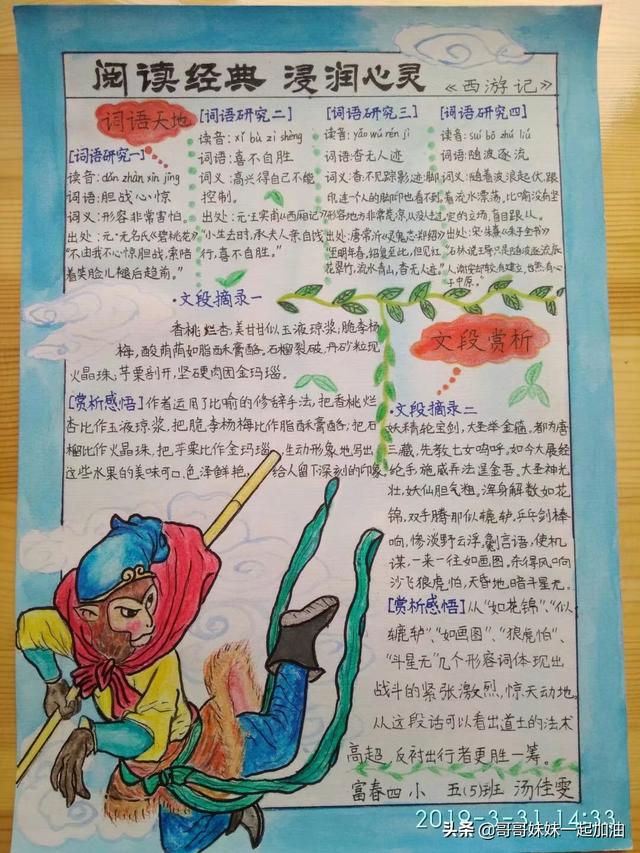 阅读经典 浸润心灵 《西游记》
词语天地
[词语研究一]
读音:dǎn zhàn xīn jīng
词语:胆战心惊
词义:形容非常害怕。
出处:元·无名氏《碧桃花》
"不由我不心惊胆战,索陪
着笑脸儿褪后趋前。"
[词语研究二]
读音:xǐ bù zì shèng
词语:喜不自胜
词义:高兴得自己不能
控制。
出处:元·王实甫《西厢记》
"小生去时,承夫人亲自饯
行,喜不自胜。"
[词语研究三]
读音:yǎo wú rén jì
词语:杳无人迹
词义:杳:不见踪影;迹:脚
印,连一个人的脚印也看不到,
形容地方非常荒凉,从没人过。
出处:唐常沂《灵鬼志·郑绍》
"至明年春,绍复至此,但见红
花翠竹,流水青山,杳无人迹。"
[词语研究四]
读音:suí bō zhú liú
词语:随波逐流
词义:随着波浪起伏,跟
着流水漂荡,比喻没有坚
定的立场,盲目跟从。
出处:宋·朱熹《朱子全书》
·文段摘录一
香桃烂杏,美甘甘似玉液琼浆,脆李杨
梅,酸荫荫如脂酥膏酪。石榴裂破,丹砂粒现
火晶珠;苹栗剖开,坚硬肉团金玛瑙。
[赏析感悟]作者运用了比喻的修辞手法,把香桃烂
杏比作玉液琼浆,把脆李杨梅比作脂酥膏酪;把石
榴比作火晶珠,把苹栗比作金玛瑙,生动形象地写出
这些水果的美味可口,色泽鲜艳,给人留下深刻的印象。
文段赏析
·文段摘录二
妖精轮宝剑,大圣举金箍,都为唐
三藏,先教七女呜呼,如今大展经
纶手,施威弄法逞金吾。大圣神光
壮,妖仙胆气粗。浑身解数如花
锦,双手腾那似辘轳,乒乓剑棒
响,惨淡野云浮,劖言语,使机
谋,一来一往如画图。杀得风响
沙飞狼虎怕,天昏地暗斗星无。
[赏析感悟]从"如花锦"、"似
辘轳"、"如画图"、"狼虎怕"、
"斗星无"几个形容词体现出
战斗的紧张激烈,惊天动地,
从这段话可以看出道士的法术
高超,反衬出行者更胜一筹。
富春四小 五(5)班 汤佳雯
2019-3-31 14:33
头条 @哥哥妹妹一起加油